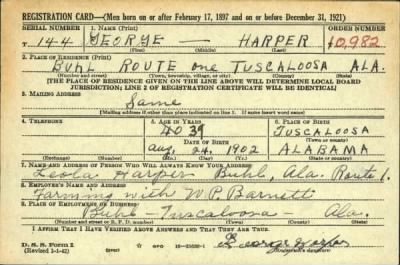 REGISTRATION CARD—(Men born on or after February 17, 1897 and on or before December 31, 1921)
SERIAL NUMBER 1. NAME (Print) ORDER NUMBER
T- 144 GEORGE — HARPER 10,982
(First) (Middle) (Last)
2. PLACE OF RESIDENCE (Print)
BUHL ROUTE one TUSCALOOSA ALA.
(Number and street) (Town, township, village, or city) (County) (State)
[THE PLACE OF RESIDENCE GIVEN ON THE LINE ABOVE WILL DETERMINE LOCAL BOARD
JURISDICTION; LINE 2 OF REGISTRATION CERTIFICATE WILL BE IDENTICAL]
3. MAILING ADDRESS
Same
[Mailing address if other than place indicated on line 2. If same insert word same]
4. TELEPHONE 5. AGE IN YEARS 6. PLACE OF BIRTH
40 39 TUSCALOOSA
DATE OF BIRTH (Town or county)
Aug. 24, 1902 ALABAMA
(Mo.) (Day) (Yr.) (State or country)
7. NAME AND ADDRESS OF PERSON WHO WILL ALWAYS KNOW YOUR ADDRESS
Leola Harper Buhl, Ala. Route 1.
8. EMPLOYER'S NAME AND ADDRESS
Farming with W.P. Barnett
9. PLACE OF EMPLOYMENT OR BUSINESS
Buhl — Tuscaloosa — Ala.
(Number and street or R. F. D. number) (Town) (County) (State)
I AFFIRM THAT I HAVE VERIFIED ABOVE ANSWERS AND THAT THEY ARE TRUE.
D. S. S. Form 1
(Revised 1-1-42) George Harper
(Registrant's signature)